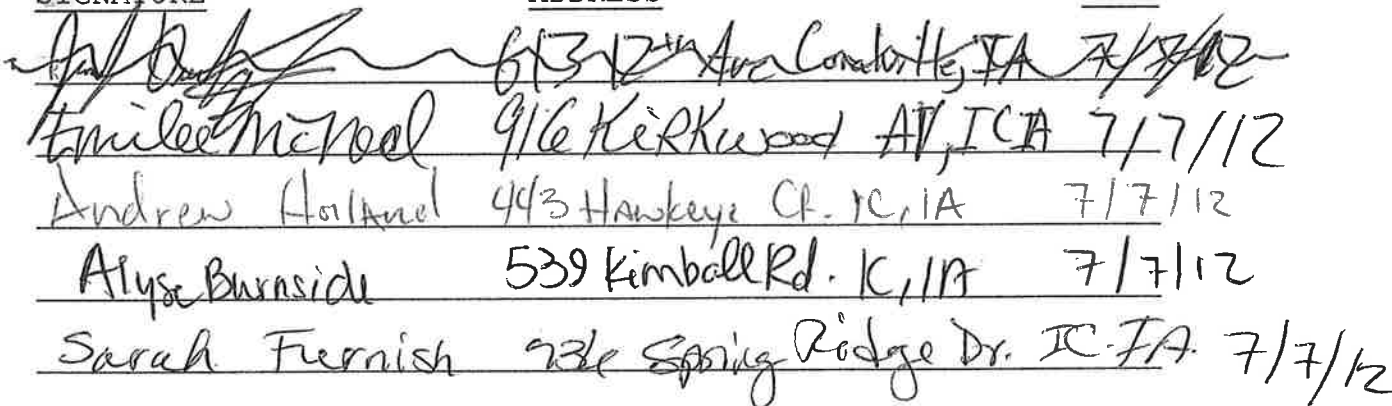 SIGNATURE ADDRESS
613 12th Ave Coralville, IA 7/7/12
Emilee McNeal 916 KiRKwood AV, ICIA 7/7/12
Andrew Holland 443 Hawkeye Ct. IC, IA 7/7/12
Alyse Burnside 539 Kimball Rd. IC, IA 7/7/12
Sarah Furnish Spring Ridge Dr. IC. IA. 7/7/12